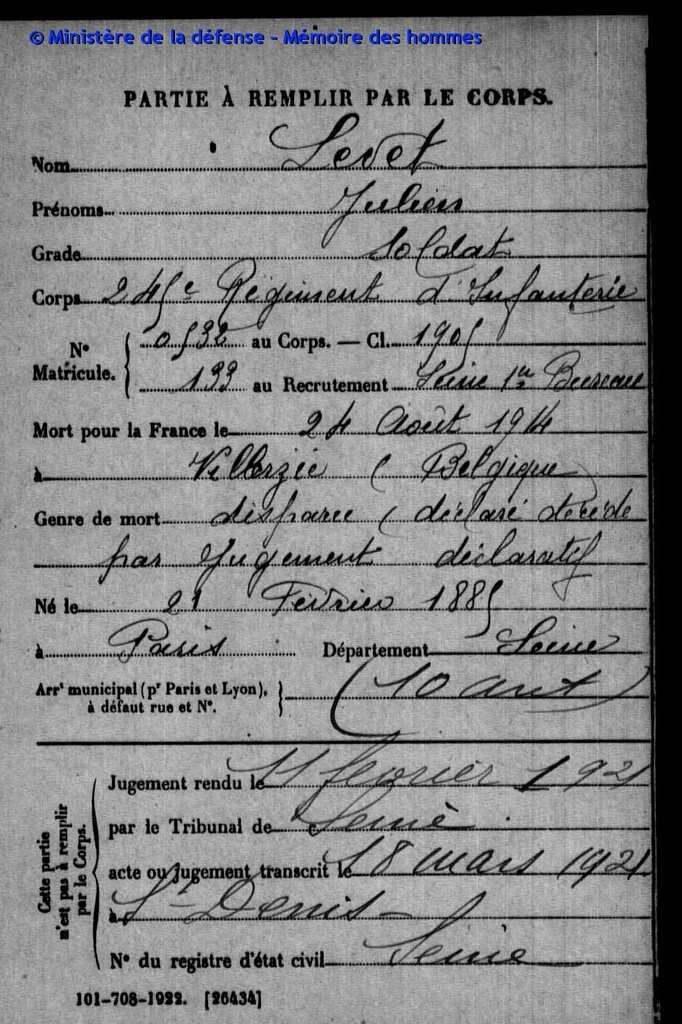 © Ministère de la défense - Mémoire des hommes
PARTIE À REMPLIR PAR LE CORPS.
Nom Levet
Prénoms Julien
Grade Soldat
Corps 245e Régiment d'Infanterie
N° Matricule. { 0532 au Corps. — Cl. 1905
133 au Recrutement Seine 1er Bureau
Mort pour la France le 24 Août 1914
à Willerzée ( Belgique
Genre de mort disparu ( déclaré décédé
par jugement déclaratif
Né le 21 Février 1885
à Paris Département Seine
Arrt municipal (pr Paris et Lyon), à défaut rue et N°. } (10 arrt)
Cette partie n'est pas à remplir par le Corps.
Jugement rendu le 11 février 1921
par le Tribunal de Seine
acte ou jugement transcrit le 18 mars 1921
à St Denis -
N° du registre d'état civil Seine
101-708-1922. [26434]